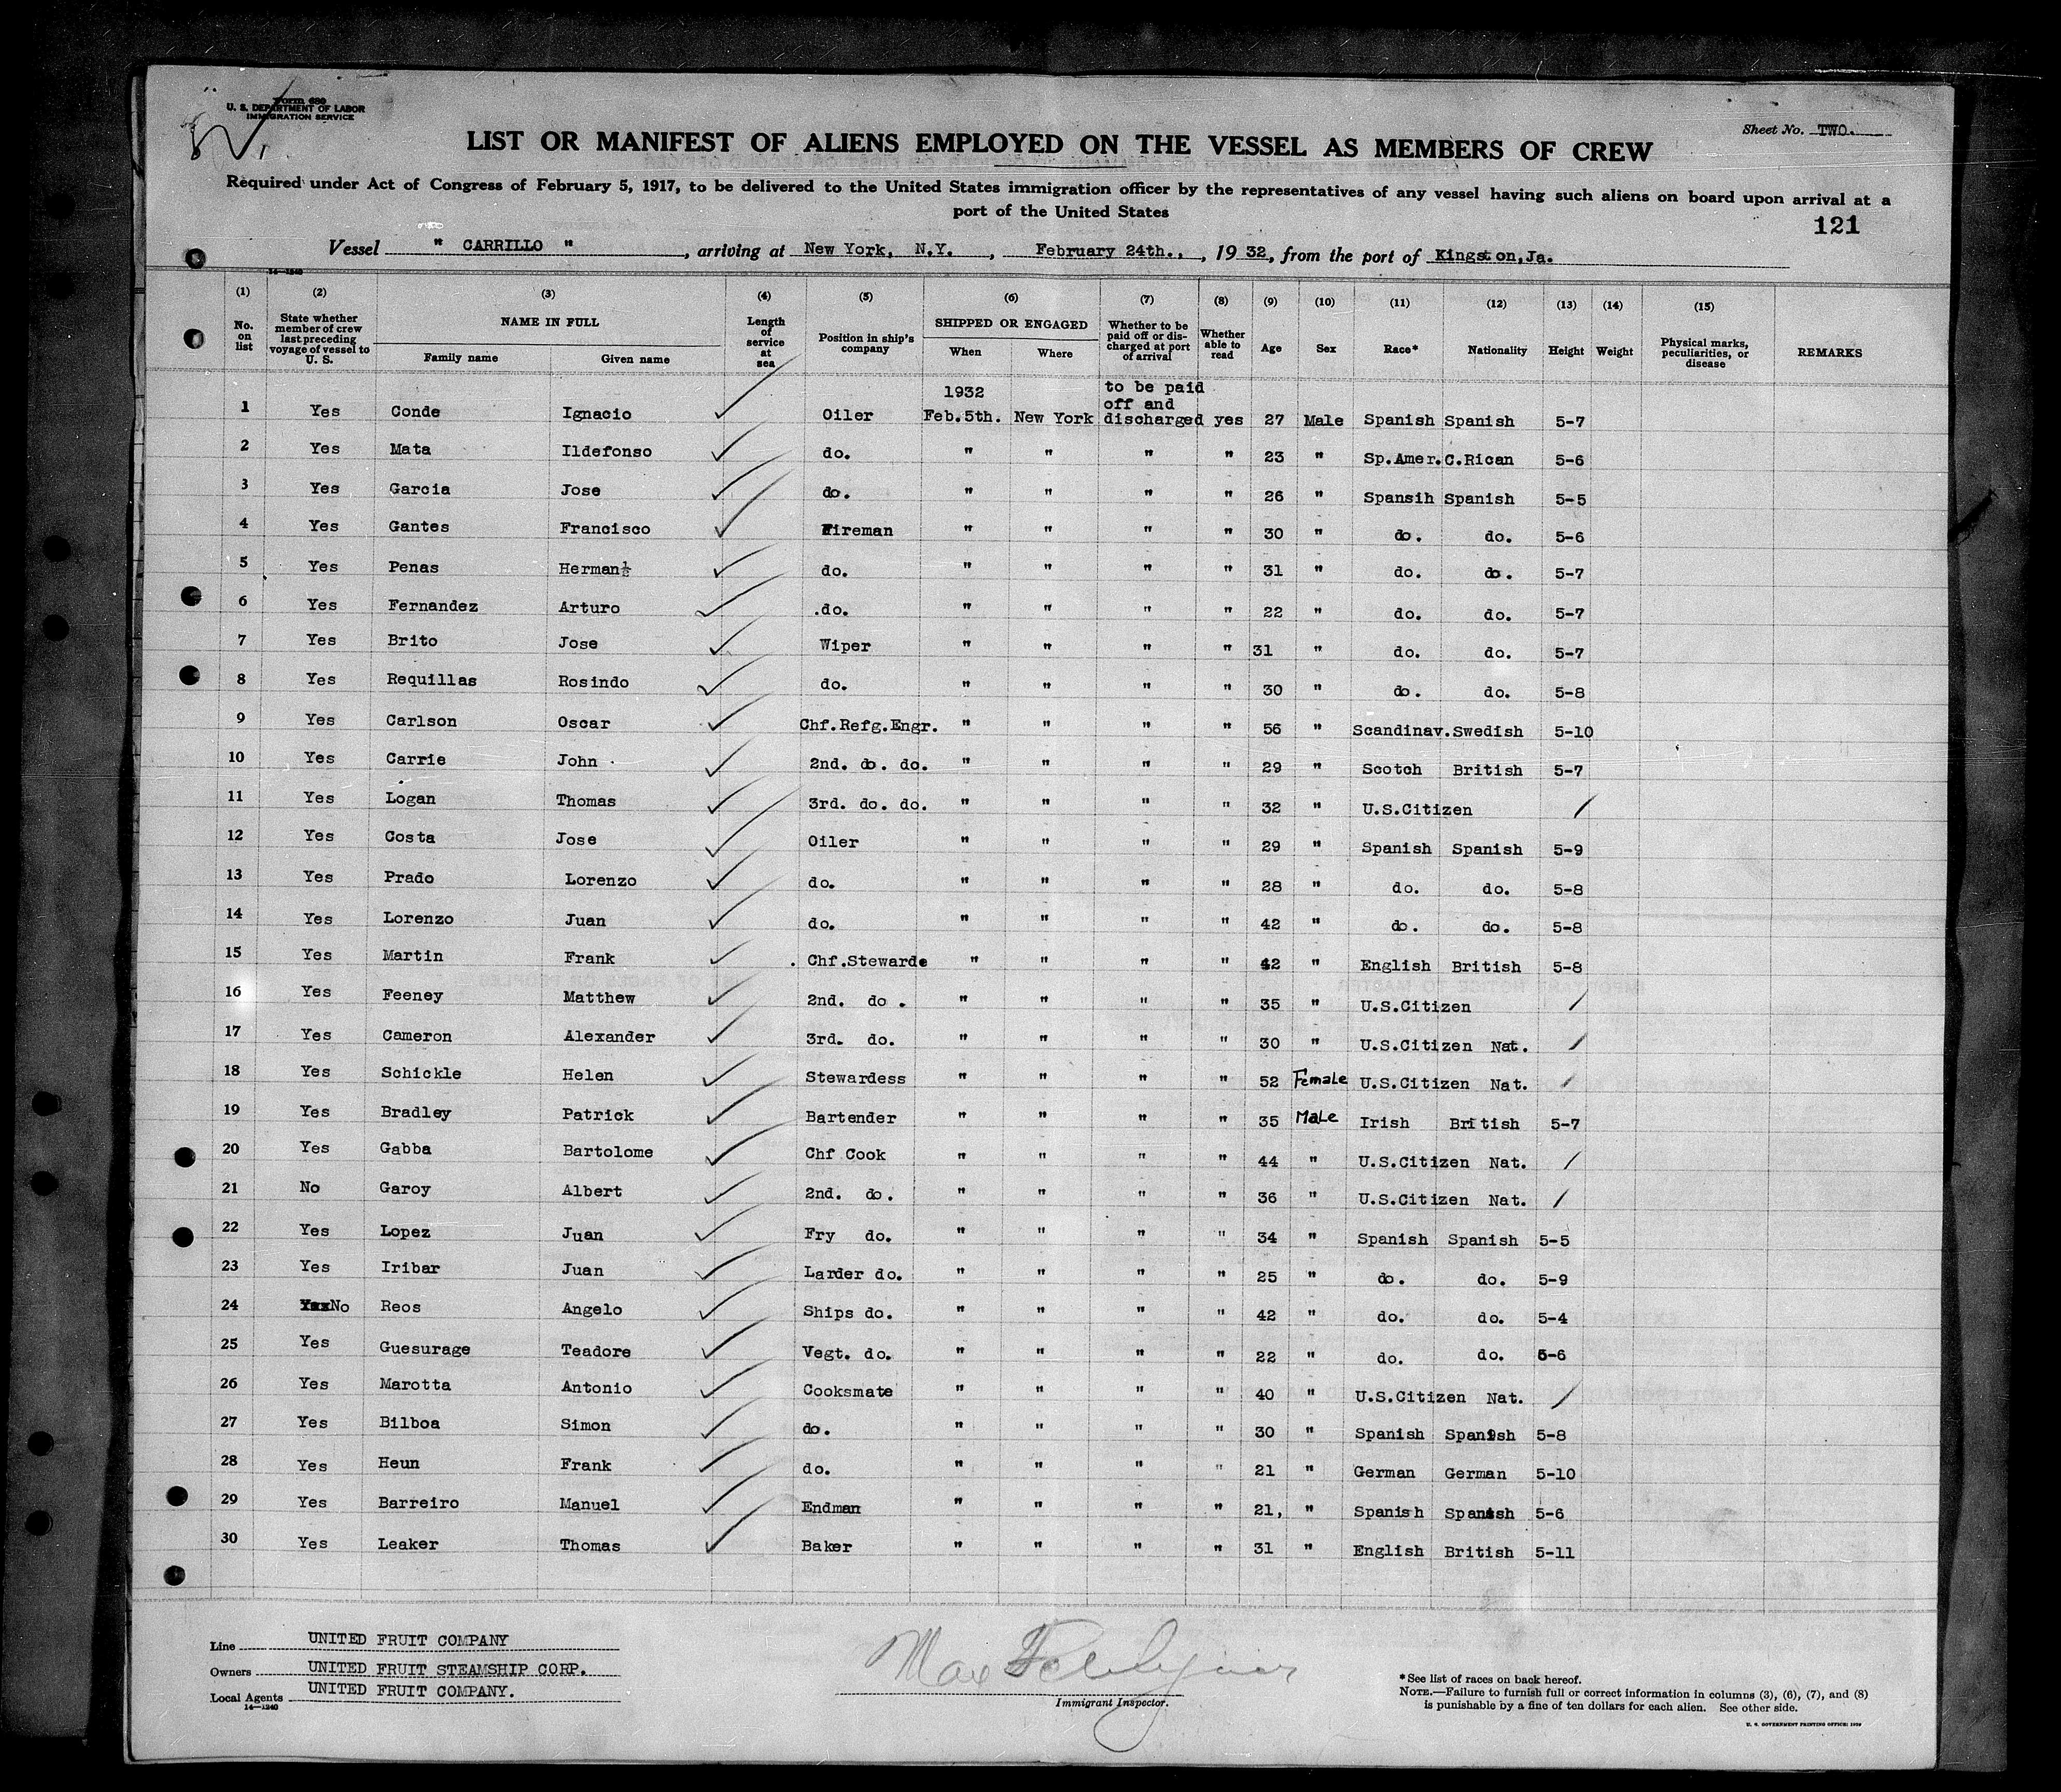 Form 680
U. S. DEPARTMENT OF LABOR
IMMIGRATION SERVICE
Sheet No. TWO.
LIST OR MANIFEST OF ALIENS EMPLOYED ON THE VESSEL AS MEMBERS OF CREW
Required under Act of Congress of February 5, 1917, to be delivered to the United States immigration officer by the representatives of any vessel having such aliens on board upon arrival at a
port of the United States
121
Vessel " CARRILLO " , arriving at New York, N.Y. , February 24th., , 19 32, from the port of Kingston,Ja.
14—1240
(1) (2) (3) (4) (5) (6) (7) (8) (9) (10) (11) (12) (13) (14) (15)
No. on list State whether member of crew last preceding voyage of vessel to U. S. NAME IN FULL Family name Given name Length of service at sea Position in ship's company SHIPPED OR ENGAGED When Where Whether to be paid off or discharged at port of arrival Whether able to read Age Sex Race* Nationality Height Weight Physical marks, peculiarities, or disease REMARKS
1932 to be paid
off and
1 Yes Conde Ignacio Oiler Feb.5th. New York discharged yes 27 Male Spanish Spanish 5-7
2 Yes Mata Ildefonso do. " " " " 23 " Sp.Amer. C.Rican 5-6
3 Yes Garcia Jose do. " " " " 26 " Spansih Spanish 5-5
4 Yes Gantes Francisco Fireman " " " " 30 " do. do. 5-6
5 Yes Penas Herman½ do. " " " " 31 " do. do. 5-7
6 Yes Fernandez Arturo .do. " " " " 22 " do. do. 5-7
7 Yes Brito Jose Wiper " " " " 31 " do. do. 5-7
8 Yes Requillas Rosindo do. " " " " 30 " do. do. 5-8
9 Yes Carlson Oscar Chf.Refg.Engr. " " " " 56 " Scandinav. Swedish 5-10
10 Yes Carrie John 2nd. do. do. " " " " 29 " Scotch British 5-7
11 Yes Logan Thomas 3rd. do. do. " " " " 32 " U.S.Citizen /
12 Yes Costa Jose Oiler " " " " 29 " Spanish Spanish 5-9
13 Yes Prado Lorenzo do. " " " " 28 " do. do. 5-8
14 Yes Lorenzo Juan do. " " " " 42 " do. do. 5-8
15 Yes Martin Frank . Chf.Stewarde " " " " 42 " English British 5-8
16 Yes Feeney Matthew 2nd. do . " " " " 35 " U.S.Citizen /
17 Yes Cameron Alexander 3rd. do. " " " " 30 " U.S.Citizen Nat. /
18 Yes Schickle Helen Stewardess " " " " 52 Female U.S.Citizen Nat. /
19 Yes Bradley Patrick Bartender " " " " 35 Male Irish British 5-7
20 Yes Gabba Bartolome Chf Cook " " " " 44 " U.S.Citizen Nat. /
21 No Garoy Albert 2nd. do. " " " " 36 " U.S.Citizen Nat. /
22 Yes Lopez Juan Fry do. " " " " 34 " Spanish Spanish 5-5
23 Yes Iribar Juan Larder do. " " " " 25 " do. do. 5-9
24 No Reos Angelo Ships do. " " " " 42 " do. do. 5-4
25 Yes Guesurage Teadore Vegt. do. " " " " 22 " do. do. 5-6
26 Yes Marotta Antonio Cooksmate " " " " 40 " U.S.Citizen Nat. /
27 Yes Bilboa Simon do. " " " " 30 " Spanish Spanish 5-8
28 Yes Heun Frank do. " " " " 21 " German German 5-10
29 Yes Barreiro Manuel Endman " " " " 21, " Spanish Spanish 5-6
30 Yes Leaker Thomas Baker " " " " 31 " English British 5-11
Line UNITED FRUIT COMPANY
Owners UNITED FRUIT STEAMSHIP CORP.
Local Agents UNITED FRUIT COMPANY.
14—1240
Max
Immigrant Inspector.
*See list of races on back hereof.
NOTE.—Failure to furnish full or correct information in columns (3), (6), (7), and (8)
is punishable by a fine of ten dollars for each alien. See other side.
U. S. GOVERNMENT PRINTING OFFICE: 1929